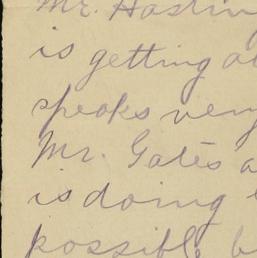 Mr. Hastin
is getting a
speaks very
Mr. Gates a
is doing
possible b